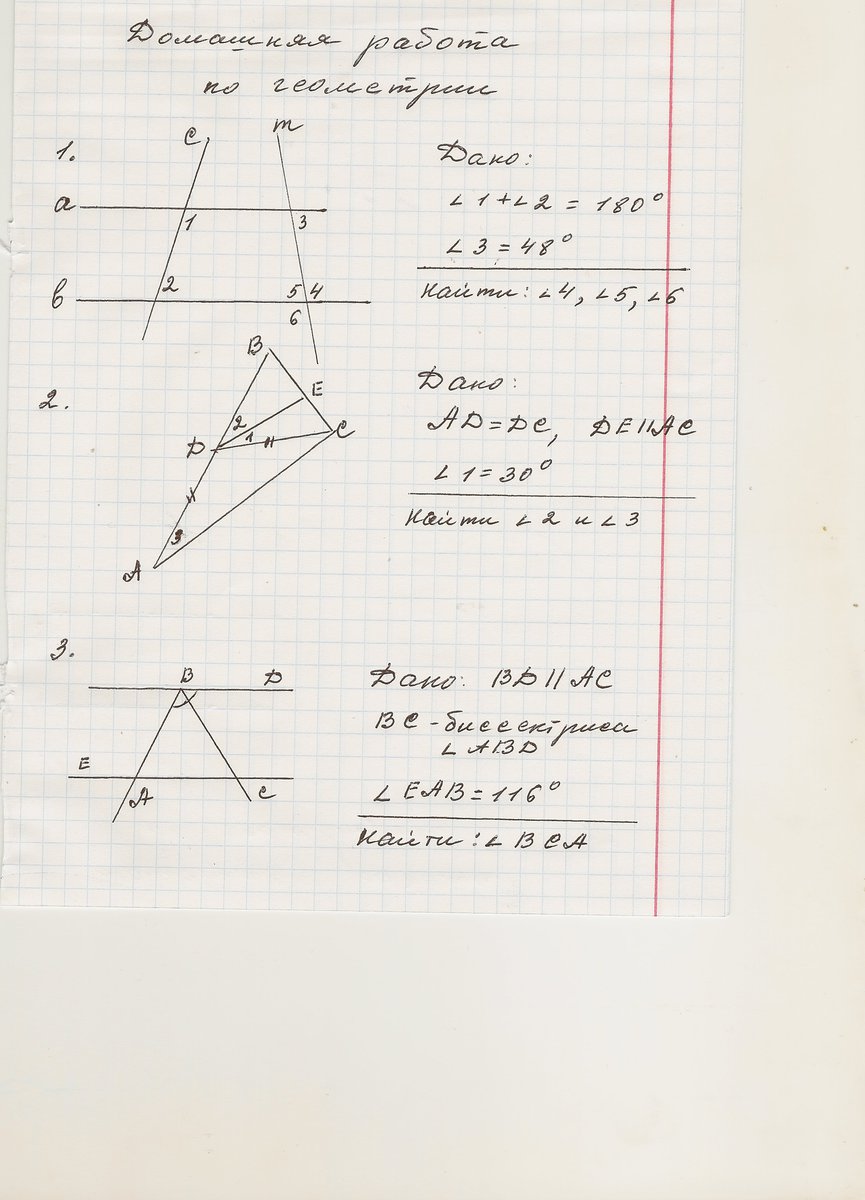 Домашняя работа
по геометрии
1.
c
m
a
1
3
b
2
5 4
6
Дано:
∠1+∠2 = 180°
∠3 = 48°
Найти: ∠4, ∠5, ∠6
2.
B
E
2
1
C
D
3
A
Дано:
AD=DC, DE||AC
∠1=30°
Найти ∠2 и ∠3
3.
B
D
E
A
C
Дано: BD||AC
BC - биссектриса
∠ABD
∠EAB=116°
Найти: ∠BCA